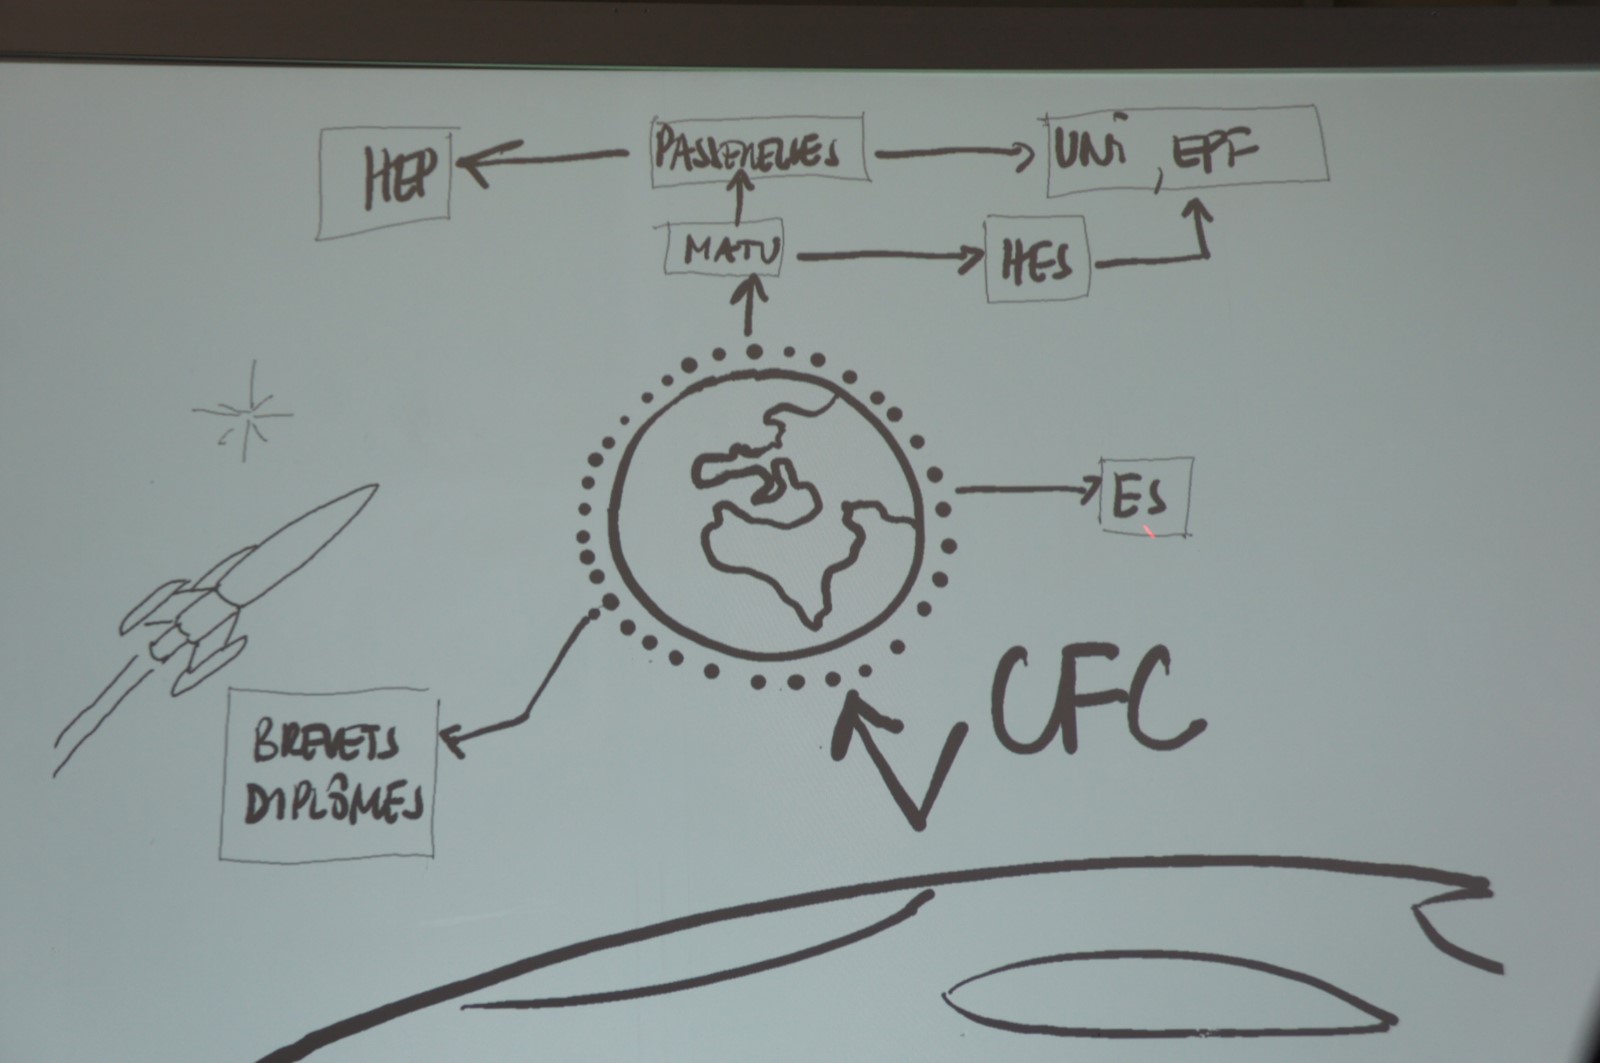 HEP
PASSERELLES
UNI, EPF
MATU
HES
ES
CFC
BREVETS
DIPLÔMES